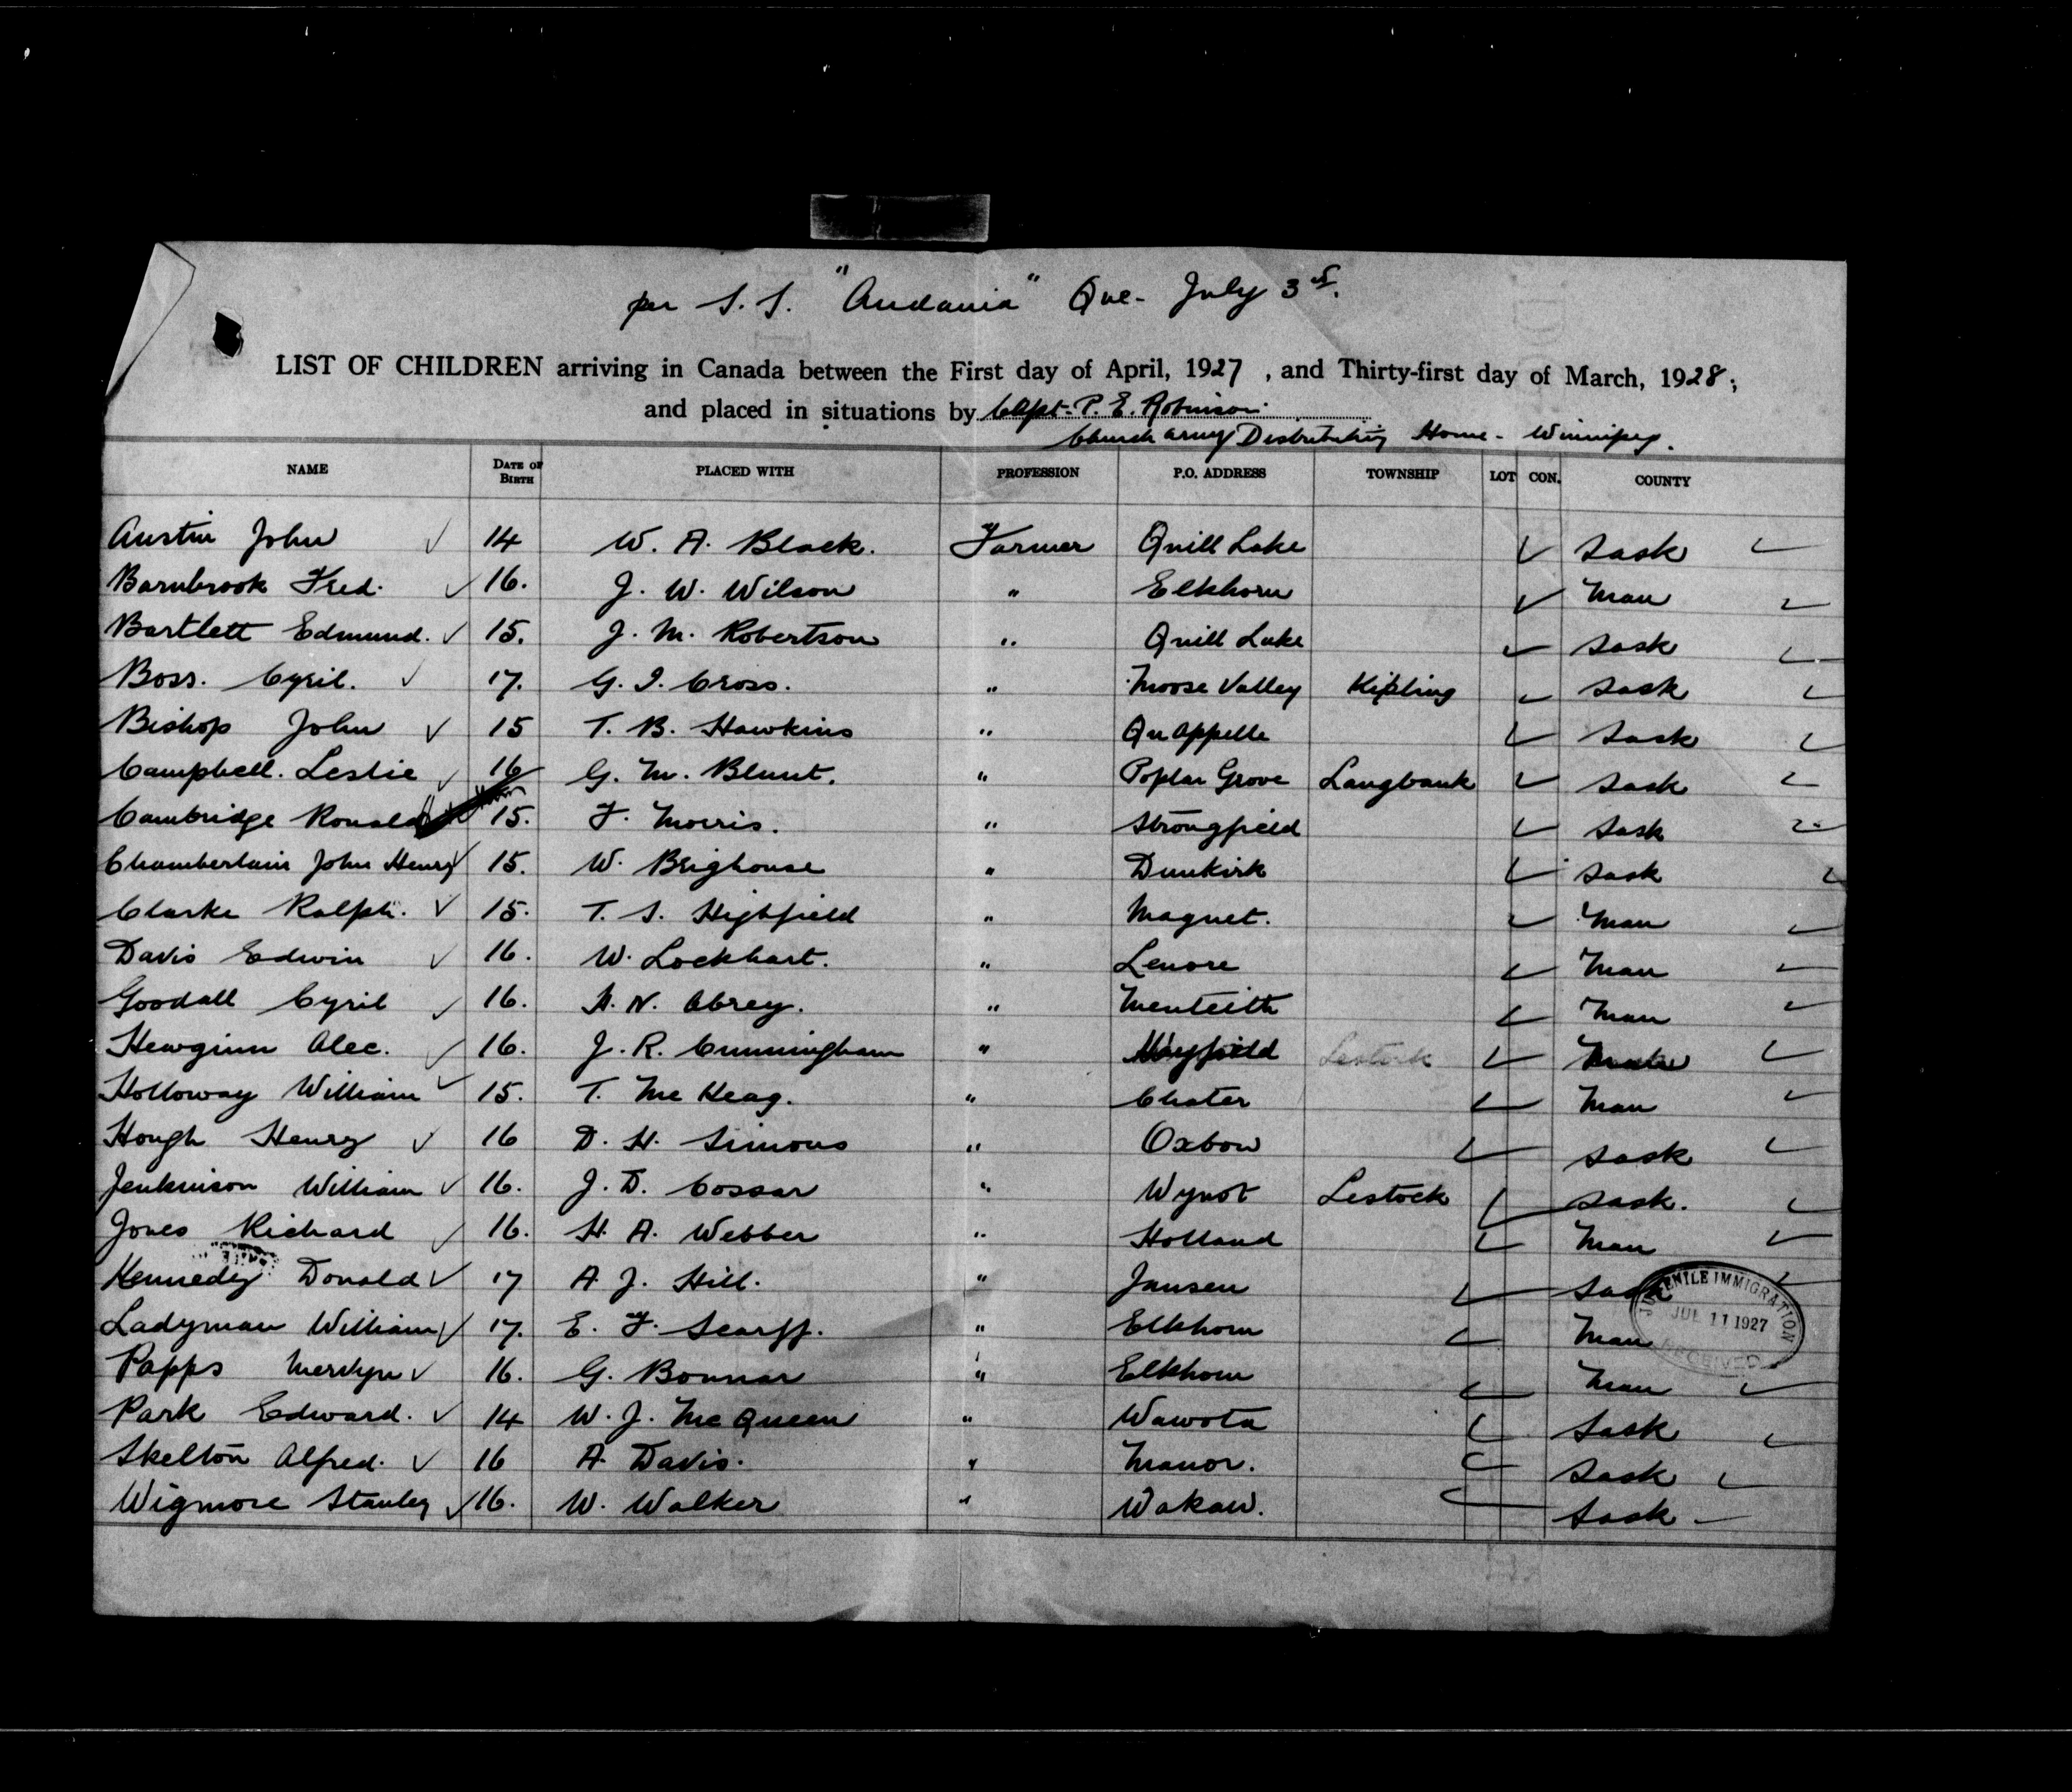 per S. S. "Andania" Que- July 3rd.
LIST OF CHILDREN arriving in Canada between the First day of April, 1927, and Thirty-first day of March, 1928;
and placed in situations by Capt- P. E. Robinson
Church Army Distributing Home - Winnipeg.
NAME DATE OF BIRTH PLACED WITH PROFESSION P.O. ADDRESS TOWNSHIP LOT CON. COUNTY
Austin John ✓ 14 W. A. Black. Farmer Quill Lake ✓ Sask ✓
Barnbrook Fred. ✓ 16. J. W. Wilson " Elkhorn ✓ Man ✓
Bartlett Edmund. ✓ 15. J. M. Robertson " Quill Lake ✓ Sask ✓
Boss. Cyril. ✓ 17. G. I. Cross. " Moose Valley Kipling ✓ Sask ✓
Bishop John ✓ 15 T. B. Hawkins " Qu Appelle ✓ Sask ✓
Campbell. Leslie ✓ 16 G. M. Blunt. " Poplar Grove Langbank ✓ Sask ✓
Cambridge Ronald 15. F. Morris. " Strongfield ✓ Sask ✓
Chamberlain John Henry ✓ 15. W. Brighouse " Dunkirk ✓ Sask ✓
Clarke Ralph. ✓ 15. T. S. Highfield " Magnet. ✓ Man ✓
Davis Edwin ✓ 16. W. Lockhart. " Lenore ✓ Man ✓
Goodall Cyril ✓ 16. H. N. Abrey. " Menteith ✓ Man ✓
Hewginn Alec. ✓ 16. J. R. Cunningham " Mayfield Lestock ✓ ✓
Holloway William ✓ 15. T. Mc Heag. " Chater ✓ Man ✓
Hough Henry ✓ 16 D. H. Simons " Oxbow ✓ Sask ✓
Jenkinson William ✓ 16. J. D. Cossar " Wynot Lestock ✓ Sask. ✓
Jones Richard ✓ 16. H. A. Webber " Holland ✓ Man ✓
Kennedy Donald ✓ 17 A. J. Hill. " Jansen ✓ Sask ✓
Ladyman William ✓ 17. E. F. Scarff. " Elkhorn ✓ Man
Papps Mervyn ✓ 16. G. Bonnar " Elkhorn ✓ Man ✓
Park Edward. ✓ 14 W. J. Mc Queen " Wawota ✓ Sask ✓
Skelton Alfred. ✓ 16 A. Davis. " Manor. ✓ Sask ✓
Wigmore Stanley ✓ 16. W. Walker " Wakaw. ✓ Sask -
JUVENILE IMMIGRATION
JUL 11 1927
RECEIVED